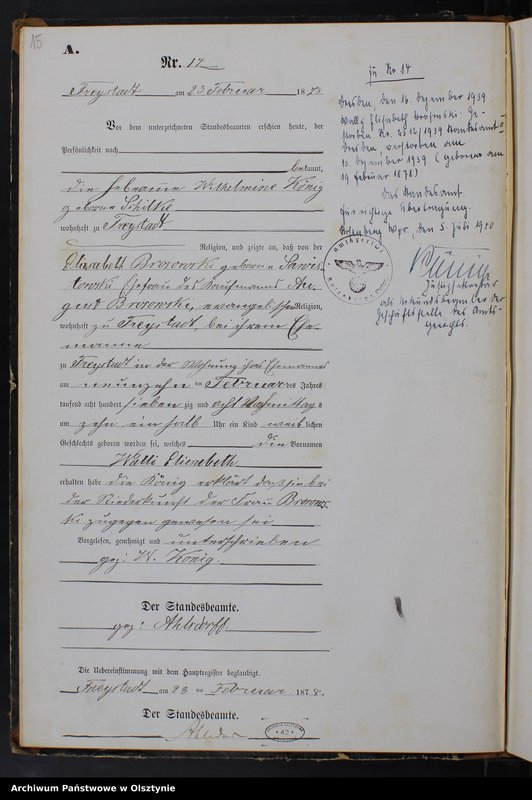 15
A.
Nr. 14
Freystadt am 23 Februar 1878
Vor dem unterzeichneten Standesbeamten erschien heute, der
Persönlichkeit nach
bekannt,
die Hebamme Wilhelmine König
geborne Schiltke
wohnhaft zu Freystadt
Religion, und zeigte an, daß von der
Elisabeth Brosowski geborene
Ehefrau des Kaufmanns Au-
gust Brosowski, evangelischen Religion,
wohnhaft zu Freystadt, bei ihrem Ehe-
manne
zu Freystadt in der Wohnung ihres Ehemannes
am neunzehn ten Februar des Jahres
tausend acht hundert sieben zig und acht Nachmittags
um zehn ein halb Uhr ein Kind weib lichen
Geschlechts geboren worden sei, welches die Vornamen
Walli Elisabeth
erhalten habe die König erklärt dass sie bei
der Niederkunft der Frau Brosows-
ki zugegen gewesen sei
Vorgelesen, genehmigt und unterschrieben
gez: W. König.
Der Standesbeamte.
gez: Ahlsdorff.
Die Uebereinstimmung mit dem Hauptregister beglaubigt.
Freystadt am 23 ten Februar 1878.
Der Standesbeamte.
zu Nr 14
Dresden, den 16. Dezember 1939
Wally Elisabeth Brosowski: Ge-
storben Nr. 2012/1939 Standesamt II
Dresden, verstorben am
13. Dezember 1939 (geboren am
19. Februar 1878)
Das Standesamt.
Für richtige Übertragung.
Rosenberg Wpr., den 5. Juli 1940
Amtsgericht
Justizsekretär
als Urkundsbeamter der
Geschäftsstelle des Amts-
gerichts.
Archiwum Państwowe w Olsztynie